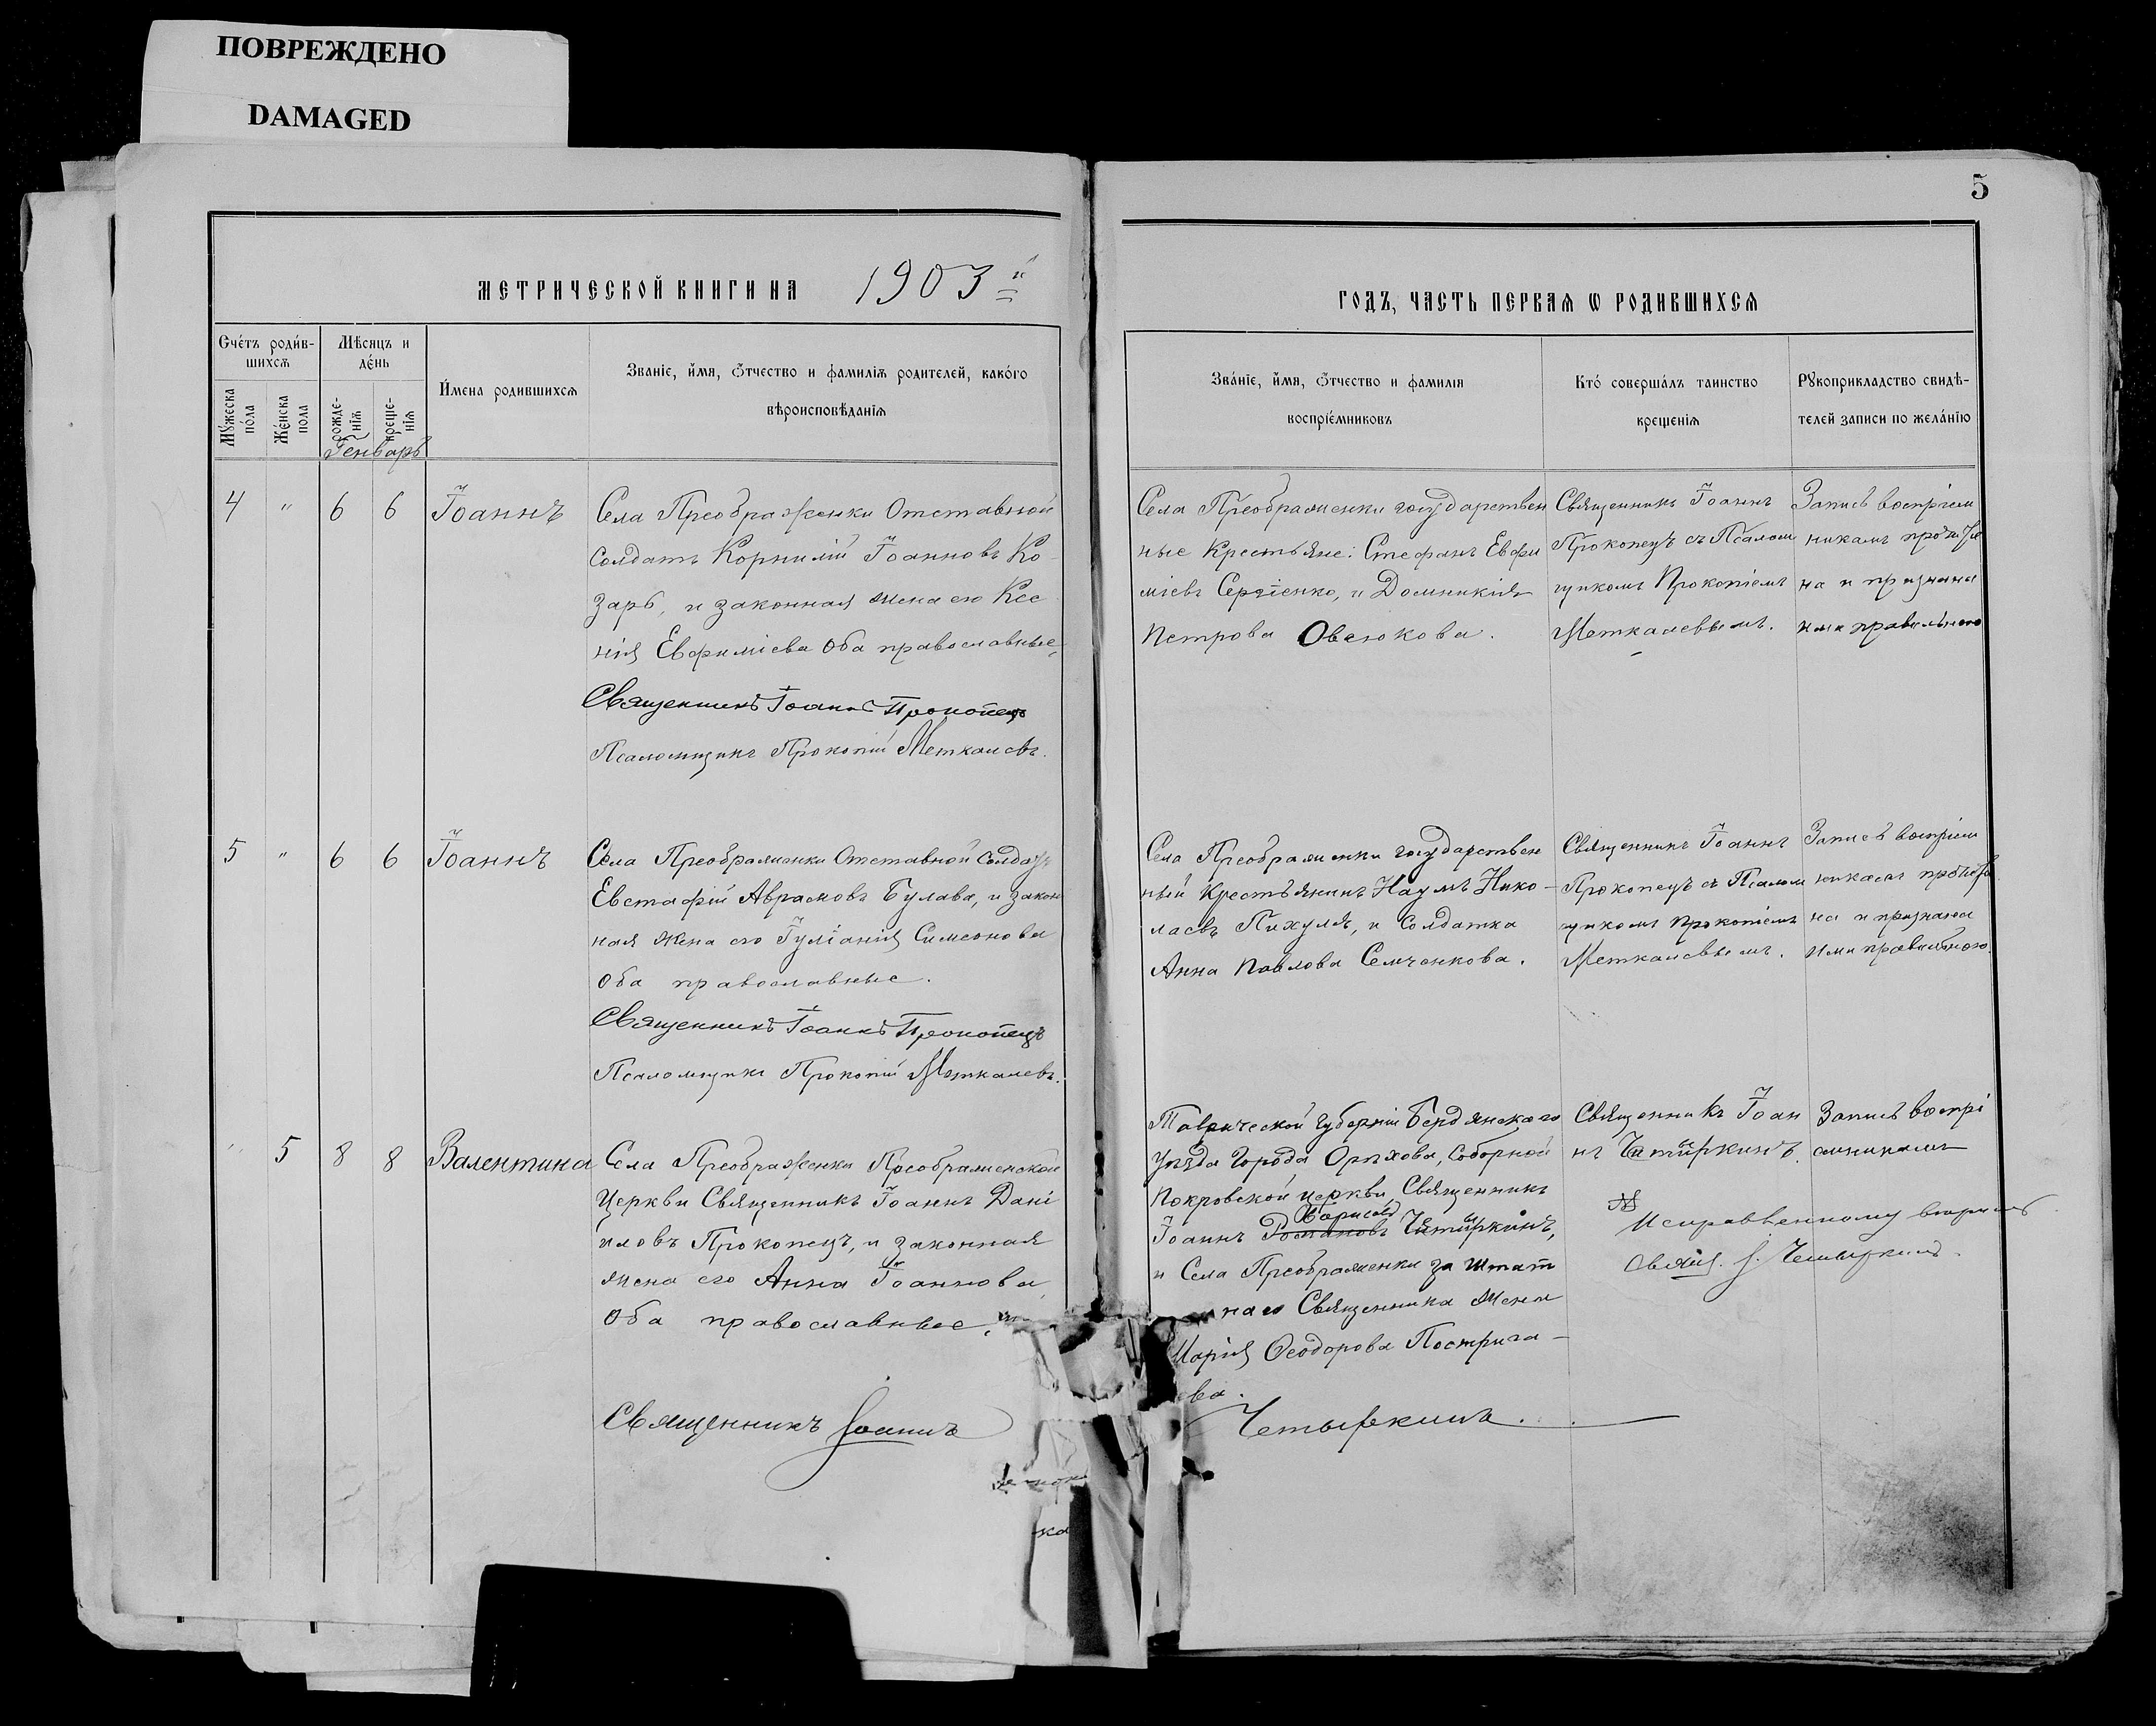 ПОВРЕЖДЕНО
DAMAGED
5
МЕТРИЧЕСКОЙ КНИГИ НА 1903й
ГОДЪ, ЧАСТЬ ПЕРВАѦ Ѡ РОДИВШИХСѦ
Счетъ родив-
шихсѧ
Мѣсяцъ и
день
Имена родившихсѧ
Званіе, имя, отчество и фамиліѧ родителей, какого
вѣроисповѣданіѧ
Мужеска
пола
Женска
пола
рожде-
ніѧ
креще-
ніѧ
Генварь
Званіе, имя, отчество и фамиліѧ
воспріемниковъ
Кто совершалъ таинство
крещеніѧ
Рукоприкладство свидѣ-
телей записи по желанію
4 " 6 6 Іоаннъ
Села Преображенки Отставной
солдатъ Корнилій Іоанновъ Ко-
заръ, и законная жена его Ксе
нія Евфиміева Оба православные,
Священникъ Іоаннъ Прокопецъ
Псаломщикъ Прокопій Меткалевъ.
Села Преображенки государствен
ные Крестьяне: Стефанъ Евфи
міевъ Сергіенко, и Домникія
Петрова Овсюкова.
Священникъ Іоаннъ
Прокопецъ съ Псалом
щикомъ Прокопіемъ
Меткалевымъ.
Запись воспріем
никамъ прочита
на и признана
ими правильною
5 " 6 6 Іоаннъ
Села Преображенки Отставной солдатъ
Евстафій Аврамовъ Булава, и закон
ная жена его Іуліанія Симеонова
Оба православные.
Священникъ Іоаннъ Прокопецъ
Псаломщикъ Прокопій Меткалевъ.
Села Преображенки государствен
ный Крестьянинъ Наумъ Нико-
лаевъ Пихуля, и Солдатка
Анна Павлова Семченкова.
Священникъ Іоаннъ
Прокопецъ съ Псалом
щикомъ Прокопіемъ
Меткалевымъ.
Запись воспріем
никамъ прочита
на и признана
ими правильною.
" 5 8 8 Валентина
Села Преображенки Преображенской
Церкви Священникъ Іоаннъ Дані
иловъ Прокопецъ, и законная
жена его Анна Іоаннова,
Оба православные.
Священникъ Іоаннъ
Таврической Губерніи Бердянскаго
Уѣзда Города Орѣхова, Соборной
Покровской церкви, Священникъ
Борисовъ
Іоаннъ Романовъ Четыркинъ,
и Села Преображенки за штат
наго Священника жена
Марія Ѳеодорова Пострига-
ева.
Четыркинъ.
Священникъ Іоан
нъ Четыркинъ.
Запись воспрі
емникамъ
Исправленному вѣрить
Свящ. І. Четыркинъ.
ка